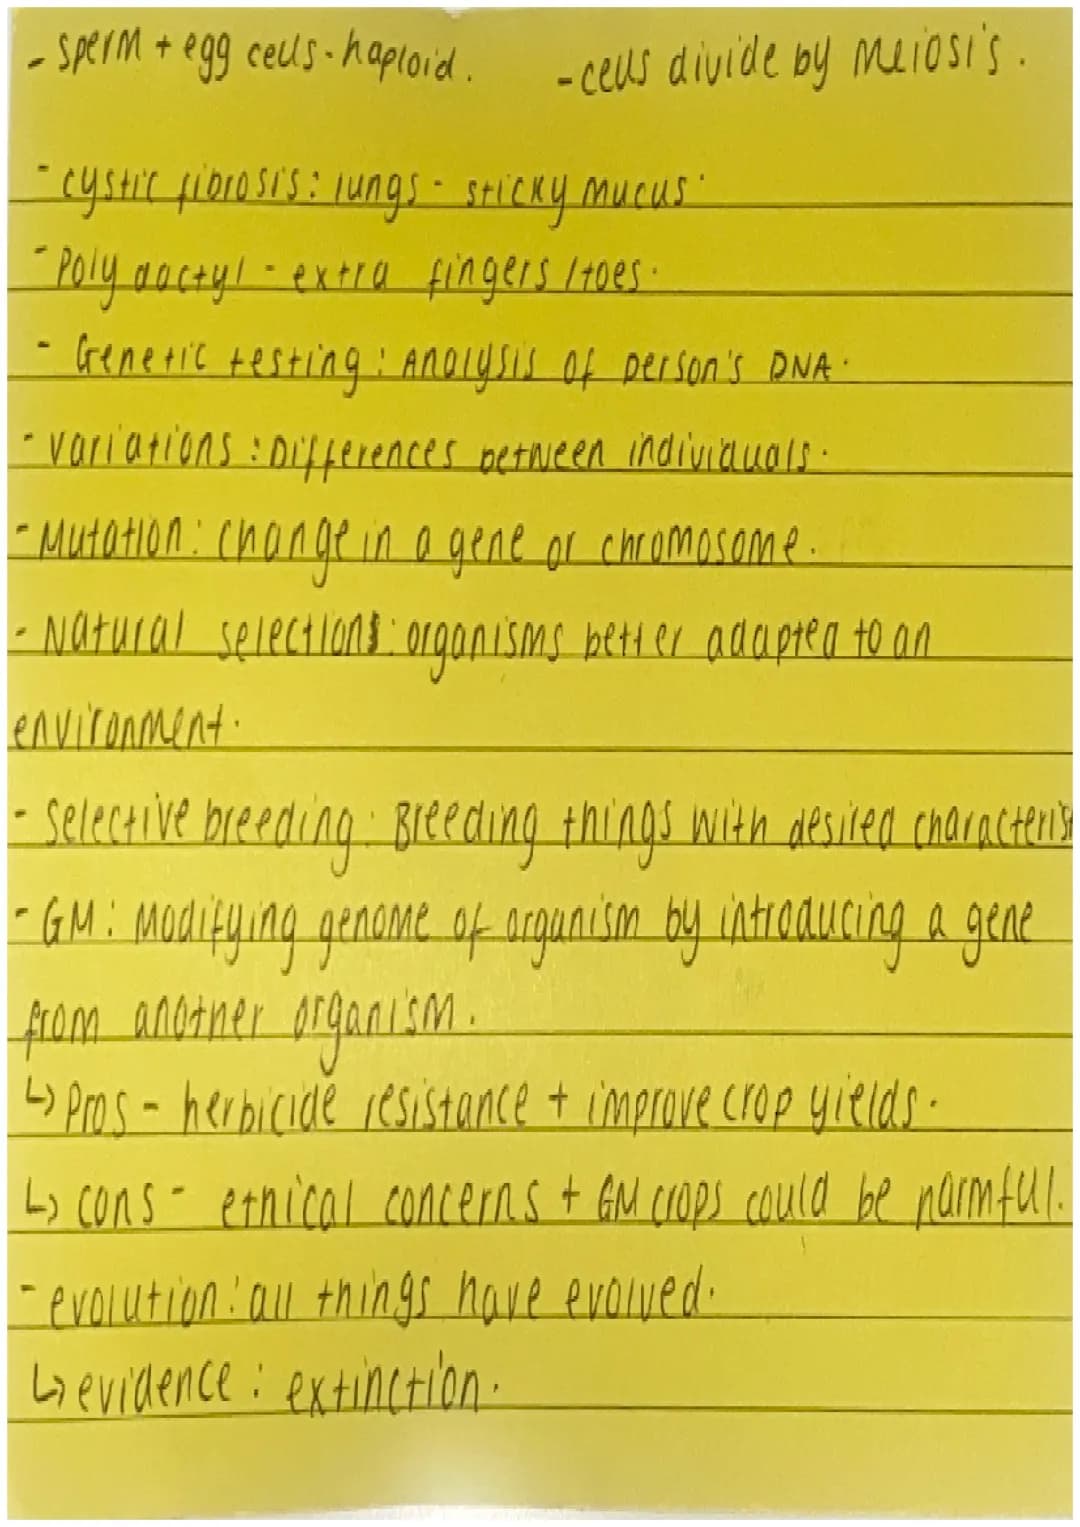 - sperm + egg cells - haploid. - cells divide by meiosis.
- cystic fibrosis: lungs - sticky mucus.
- Poly dactyl - extra fingers / toes.
- Genetic testing: Analysis of person's DNA.
- variations: Differences between individuals.
- Mutation: change in a gene or chromosome.
- Natural selections: organisms better adapted to an
environment.
- Selective breeding: Breeding things with desired characteris
- GM: Modifying genome of organism by introducing a gene
from another organism.
↳ Pros - herbicide resistance + improve crop yields.
↳ cons - ethical concerns + GM crops could be harmful.
- evolution: all things have evolved.
↳ evidence: extinction.